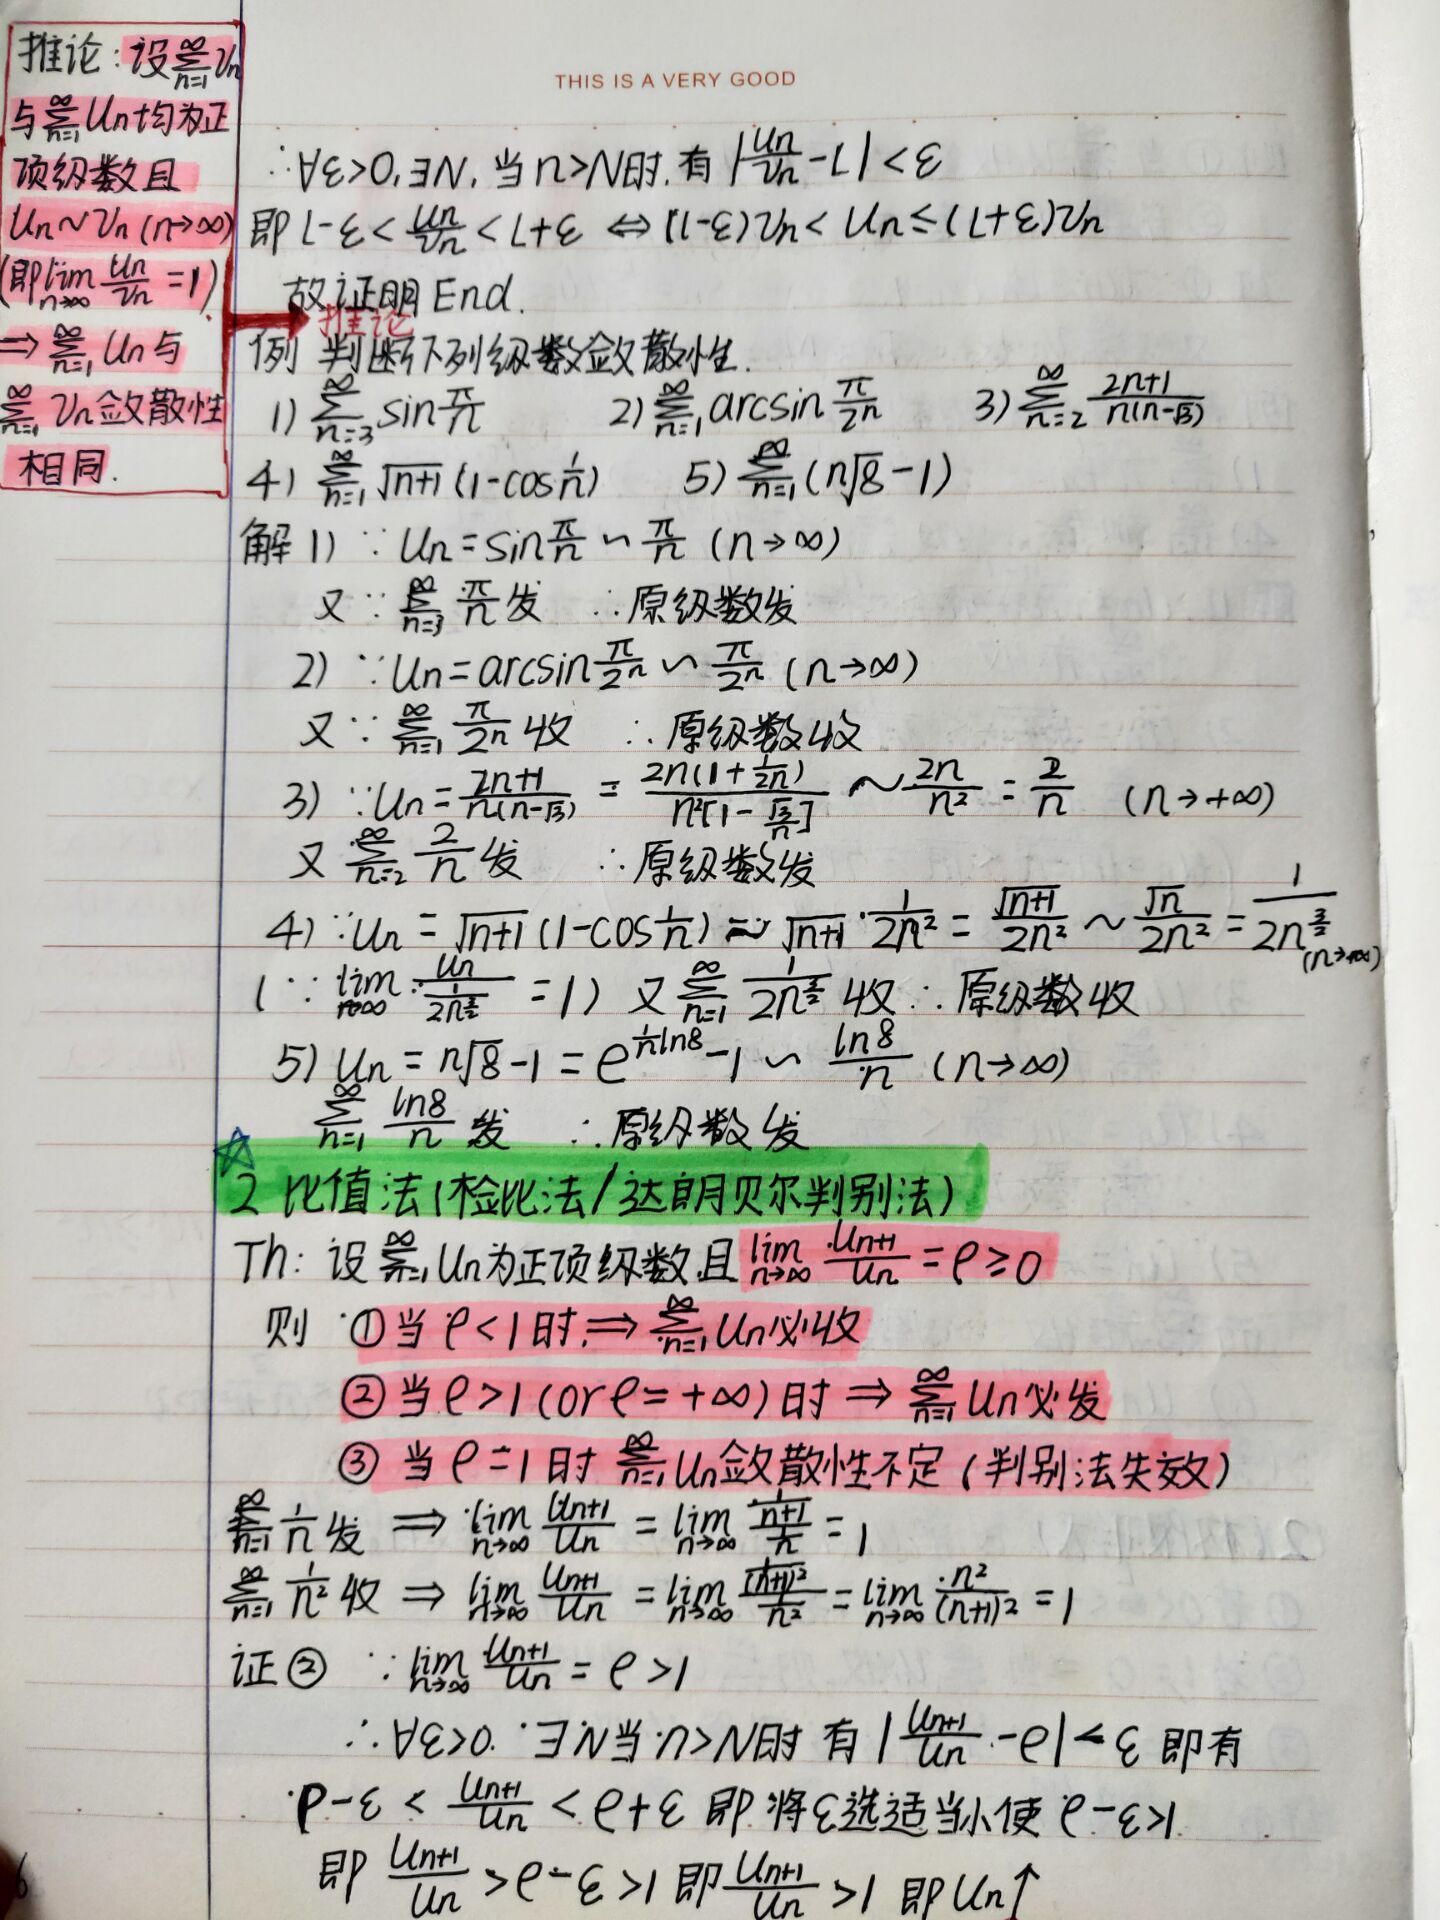 推论:设∑_{n=1}^∞ Vn
与∑_{n=1}^∞ Un均为正
项级数且
Un~Vn (n→∞)
(即lim_{n→∞} Un/Vn = 1)
⇒ ∑_{n=1}^∞ Un与
∑_{n=1}^∞ Vn敛散性
相同.
THIS IS A VERY GOOD
∴∀ε>0,∃N,当n>N时,有|Un/Vn-L|<ε
即L-ε<Un/Vn<L+ε ⇔ (L-ε)Vn<Un≤(L+ε)Vn
故证明End.
推论
例 判断下列级数敛散性.
1) ∑_{n=3}^∞ sin π/n 2) ∑_{n=1}^∞ arcsin π/2^n 3) ∑_{n=2}^∞ (2n+1)/(n(n-√3))
4) ∑_{n=1}^∞ √(n+1) (1-cos 1/n) 5) ∑_{n=1}^∞ (ⁿ√8-1)
解 1) ∵Un=sin π/n ~ π/n (n→∞)
又∵∑_{n=3}^∞ π/n 发 ∴原级数发
2) ∵Un=arcsin π/2^n ~ π/2^n (n→∞)
又∵∑_{n=1}^∞ π/2^n 收 ∴原级数收
3) ∵Un=(2n+1)/(n(n-√3)) = 2n(1+1/2n)/n²[1-√3/n] ~ 2n/n² = 2/n (n→+∞)
又∑_{n=2}^∞ 2/n 发 ∴原级数发
4) ∵Un=√(n+1) (1-cos 1/n) ~ √(n+1)·1/2n² = √(n+1)/2n² ~ √n/2n² = 1/2n^{3/2} (n→+∞)
(∵lim_{n→∞} Un/(1/2n^{3/2}) = 1) 又∑_{n=1}^∞ 1/2n^{3/2} 收∴原级数收
5) Un=ⁿ√8-1=e^{1/n ln8}-1 ~ ln8/n (n→∞)
∑_{n=1}^∞ ln8/n 发 ∴原级数发
☆2 比值法(检比法/达朗贝尔判别法)
Th: 设∑_{n=1}^∞ Un为正项级数,且lim_{n→∞} Un+1/Un=ρ≥0
则 ①当ρ<1时,⇒∑_{n=1}^∞ Un必收
②当ρ>1(orρ=+∞)时⇒∑_{n=1}^∞ Un必发
③当ρ=1时∑_{n=1}^∞ Un敛散性不定(判别法失效)
∑_{n=1}^∞ 1/n 发 ⇒ lim_{n→∞} Un+1/Un = lim_{n→∞} (1/(n+1))/(1/n) = 1
∑_{n=1}^∞ 1/n² 收 ⇒ lim_{n→∞} Un+1/Un = lim_{n→∞} (1/(n+1)²)/(1/n²) = lim_{n→∞} n²/(n+1)² = 1
证② ∵lim_{n→∞} Un+1/Un=ρ>1
∴∀ε>0.∃N.当n>N时 有|Un+1/Un-ρ|<ε 即有
ρ-ε<Un+1/Un<ρ+ε 即将ε选适当小使ρ-ε>1
即Un+1/Un>ρ-ε>1即Un+1/Un>1 即Un↑
6